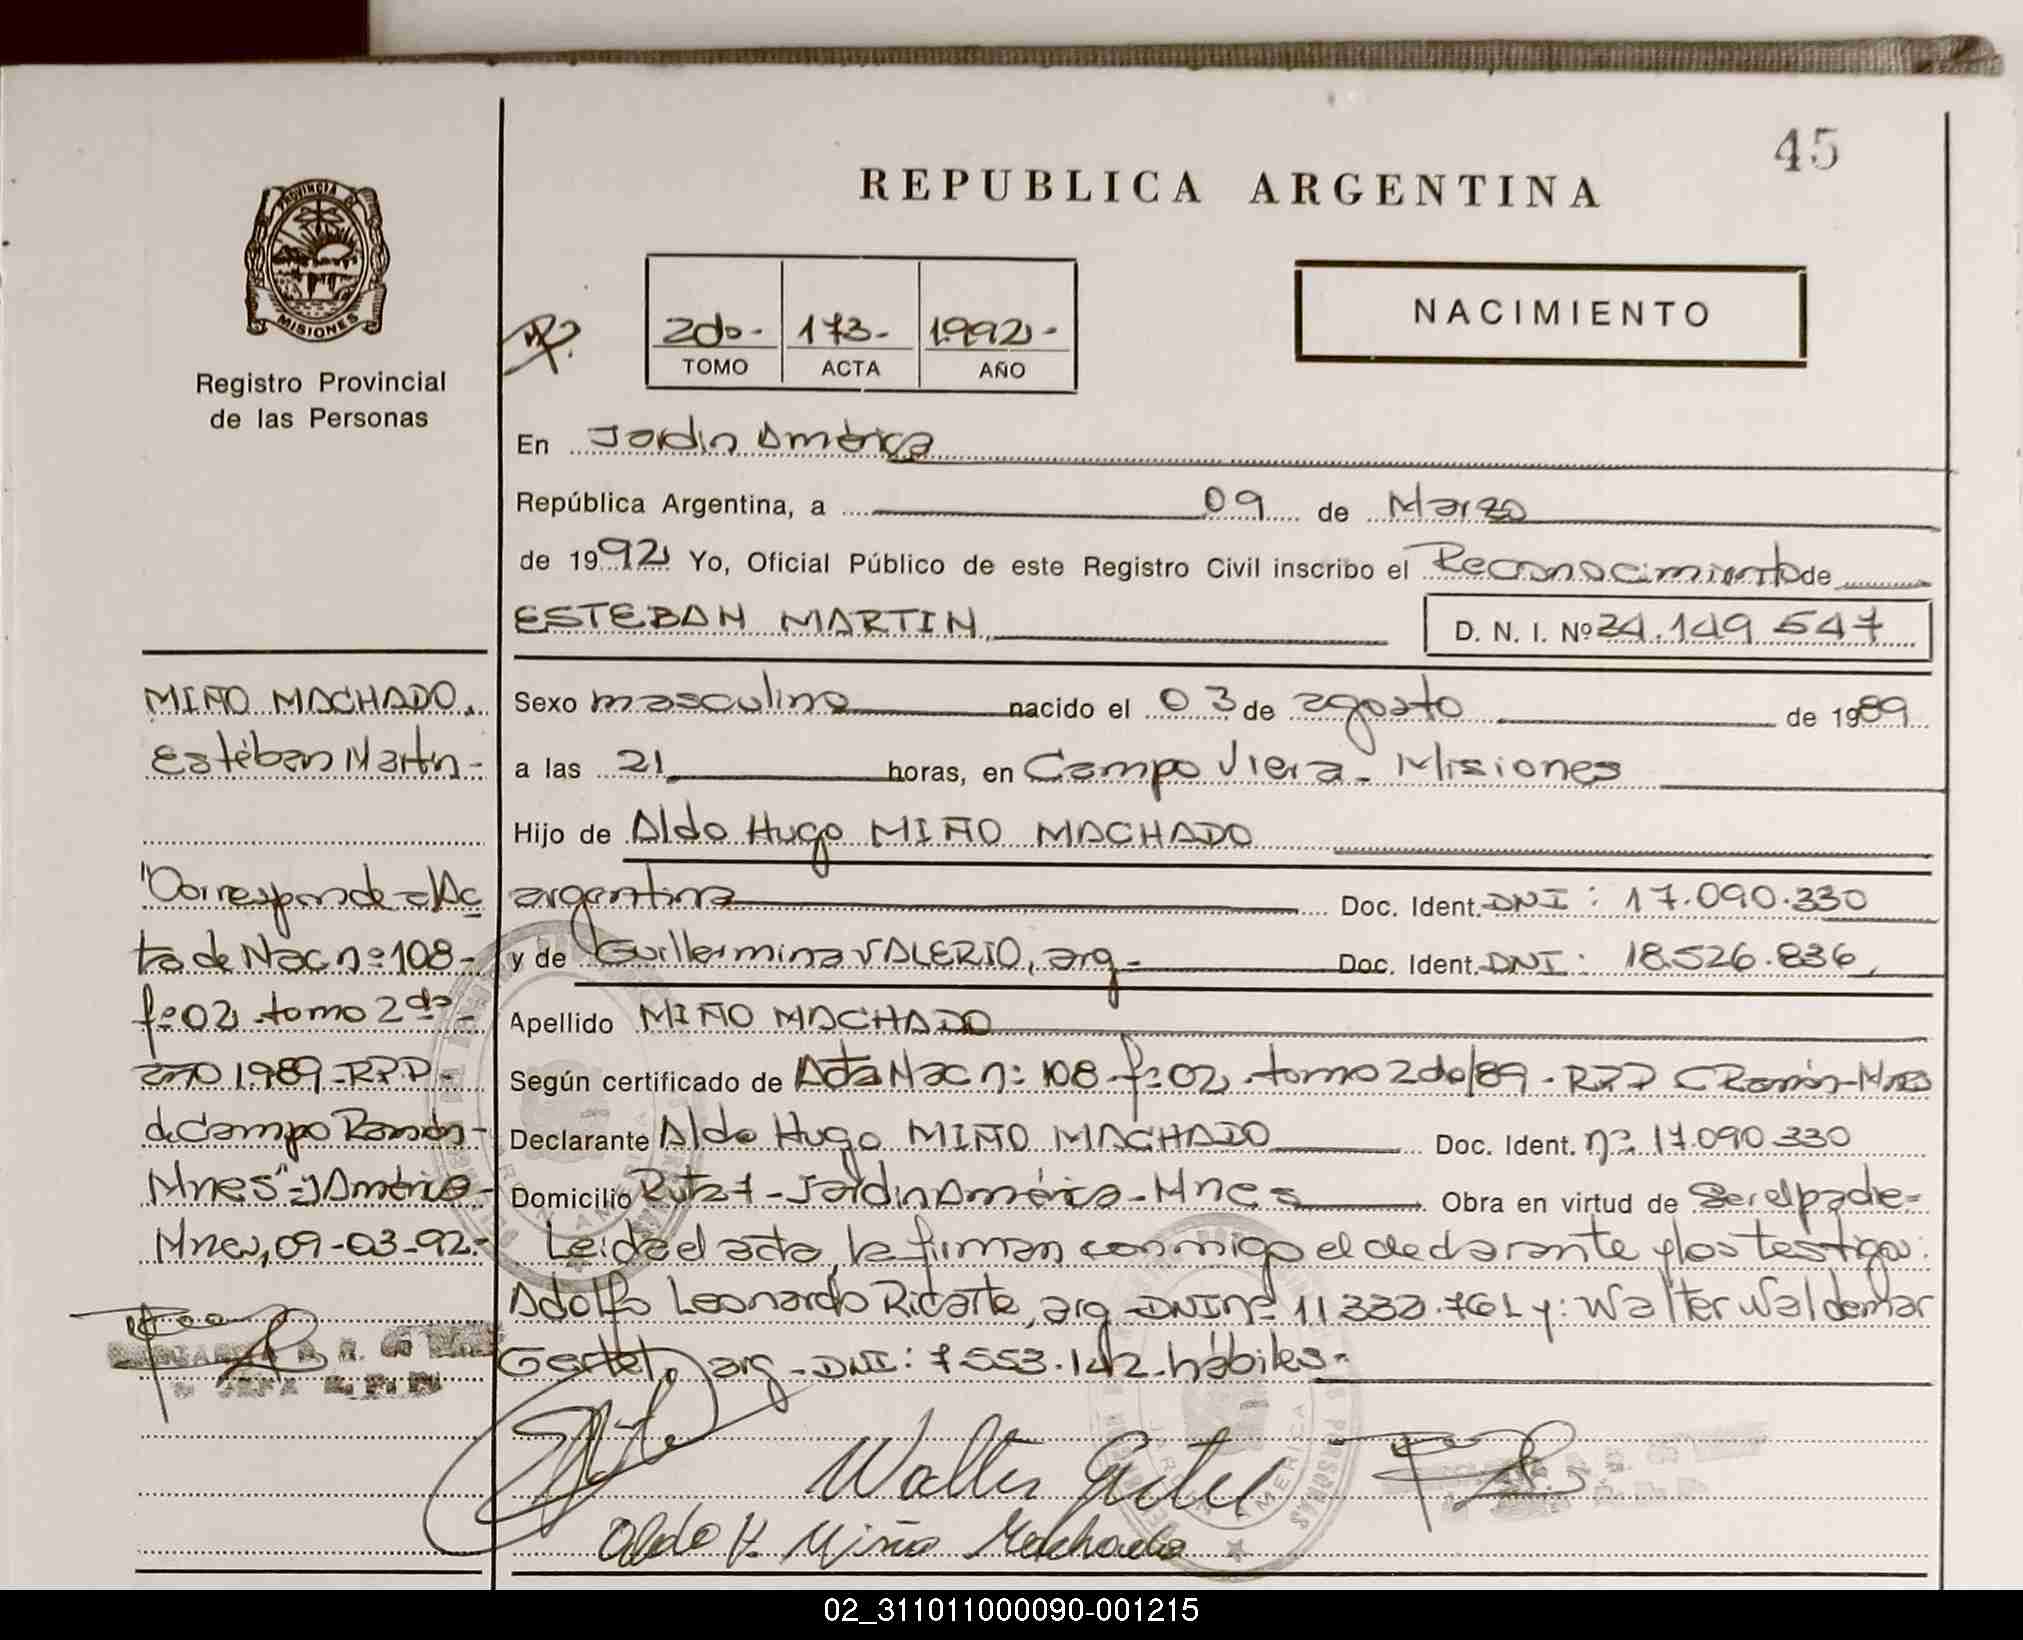 45
REPUBLICA ARGENTINA
PROVINCIA DE
MISIONES
Registro Provincial
de las Personas
2do- 173- 1.992-
TOMO ACTA AÑO
NACIMIENTO
En Jardín América
República Argentina, a 09 de Marzo
de 1992 Yo, Oficial Público de este Registro Civil inscribo el Reconocimiento de
ESTEBAN MARTIN, D. N. I. Nº 34.149.547
Sexo masculino nacido el 03 de agosto de 1989
a las 21 horas, en Campo Viera- Misiones
Hijo de Aldo Hugo MIÑO MACHADO
argentina Doc. Ident. DNI: 17.090.330
y de Guillermina VALERIO, arg- Doc. Ident. DNI: 18.526.836,
Apellido MIÑO MACHADO
Según certificado de Acta Nac nº 108 fº 02 tomo 2do/89 - RPP C Ramón-Mnes
Declarante Aldo Hugo MIÑO MACHADO Doc. Ident. nº 17.090.330
Domicilio Ruta 7 - Jardín América - Mnes Obra en virtud de Ser el padre-
Leída el acta, la firman conmigo el declarante y los testigos:
Adolfo Leonardo Ricarte, arg-DNI nº 11.332.761 y: Walter Waldemar
Gertel, arg-DNI: 7.553.142-hábiles-
Walter Gertel
Aldo H. Miño Machado
MIÑO MACHADO,
Estéban Martín-
"Corresponde al Ac
ta de Nac nº 108-
fº 02 tomo 2do-
año 1.989-RPP-
de Campo Ramón-
Mnes"-J América-
Mnes, 09-03-92.-
02_311011000090-001215